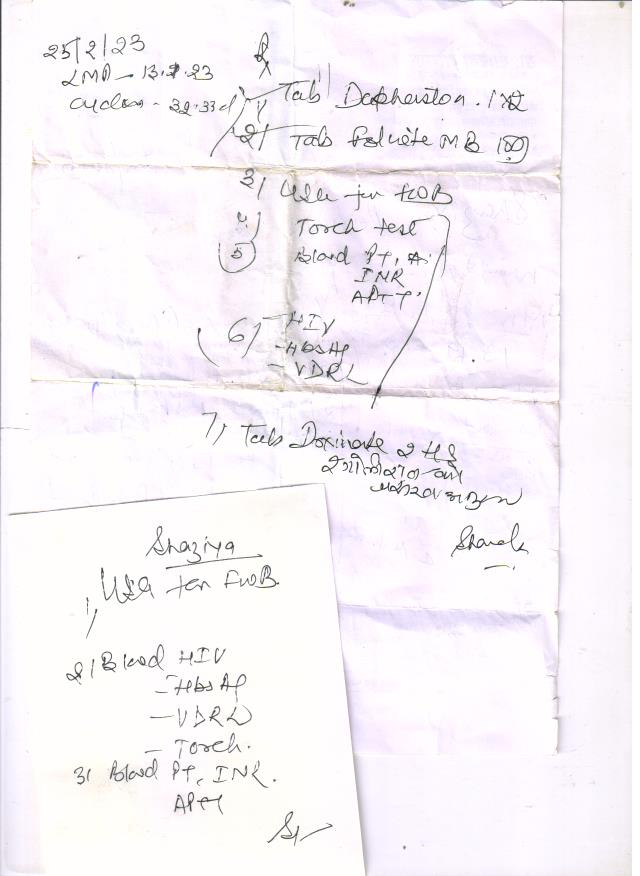 25/2/23
LMP - 13.2.23
Cycles - 32-33d
Rx
1) Tab Duphaston. 1x2
2) Tab Folvite MB
3) USG for FWB
4) Torch test
5) Blood PT,
INR
APTT.
6) - HIV
- HbsAg
- VDRL
7) Tab Doxinate 2 HS
Shaziya
1) USG for FWB.
2) Blood HIV
- HbsAg
- VDRL
- Torch.
3) Blood PT, INR.
APTT